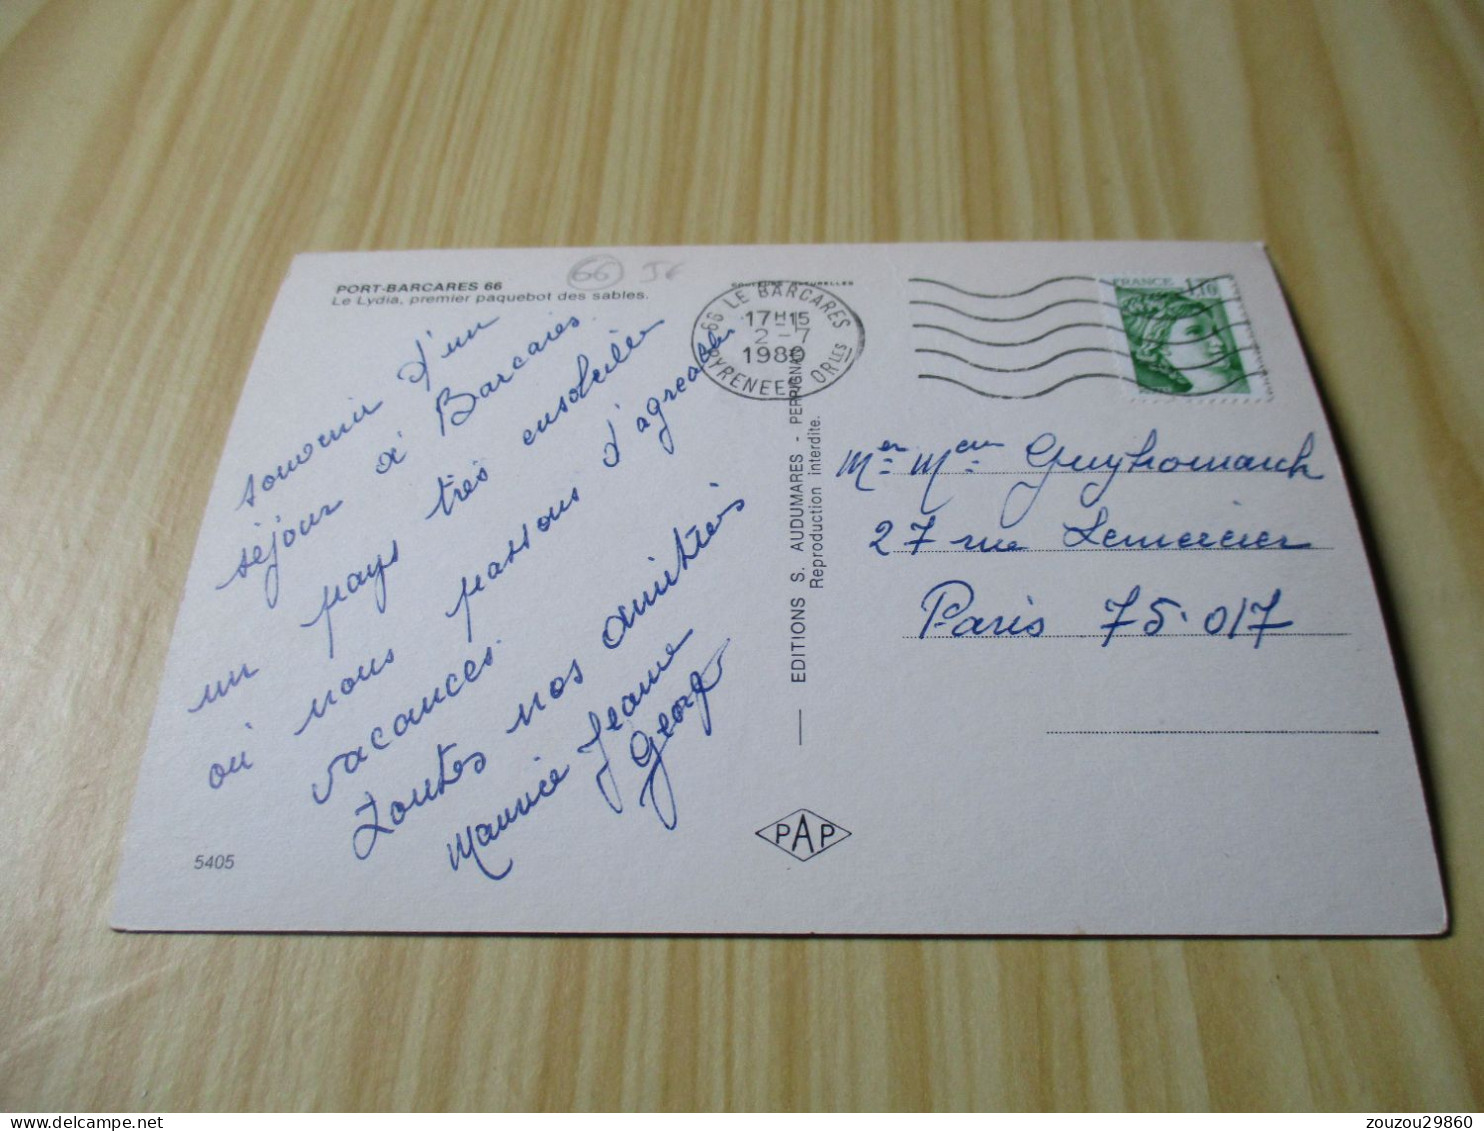 PORT-BARCARES 66
Le Lydia, premier paquebot des sables.
66
souvenir d'un
séjour à Barcarès
un pays très ensoleillé
où nous passons d'agreables
vacances.
Toutes nos amitiés
Maurice Jeanne
George
5405
66 LE BARCARES
17H15
2-7
1980
PYRENEES ORLES
EDITIONS S. AUDUMARES - PERPIGNAN
Reproduction interdite.
PAP
FRANCE 1,10
Mer Meur Guyhomarch
27 rue Lemercier
Paris 75.017
delcampe.net
zouzou29860